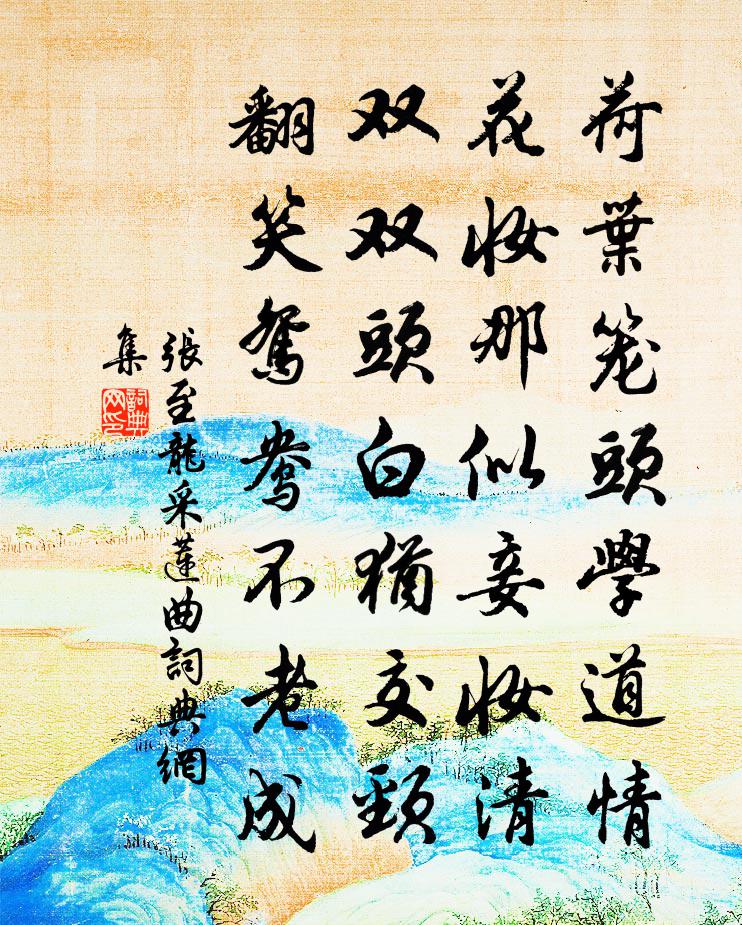 荷葉笼頭學道情
花妆那似妾妆清
双双頭白猶交頸
翻笑鴛鴦不老成
張至龍采蓮曲詞典網
集
詞典
网印